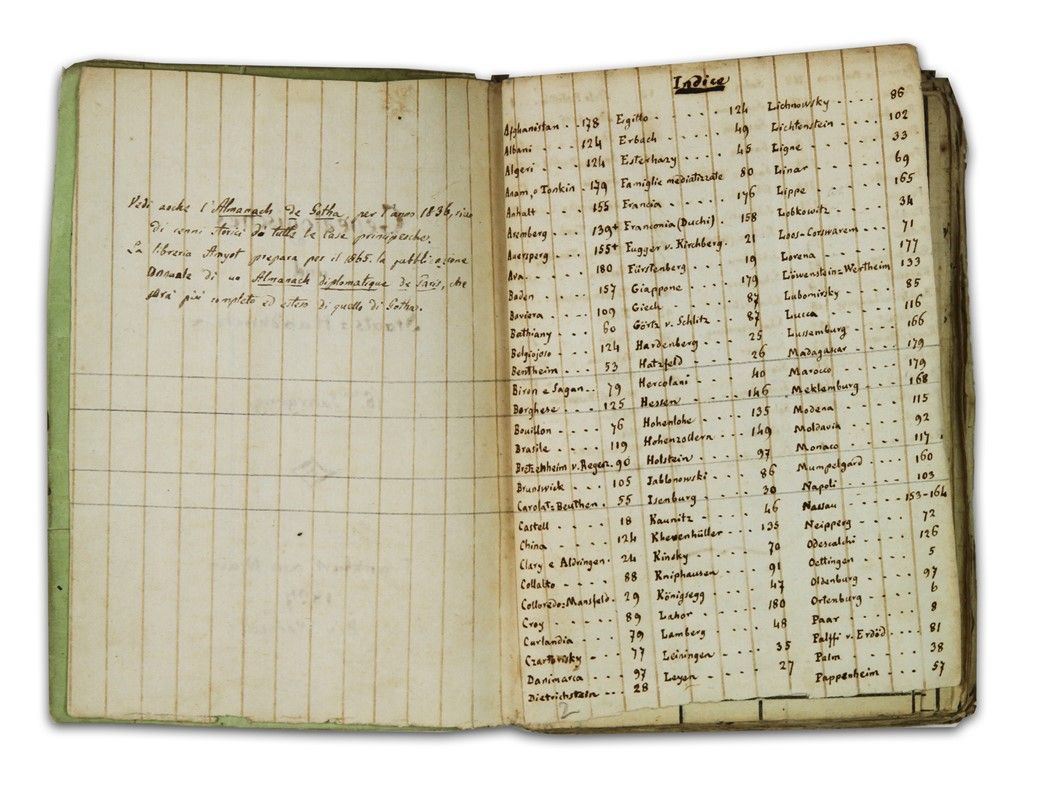 Vedi anche l'Almanach de Gotha, per l'anno 1836, ricco
di cenni storici su tutte le Case principesche.
La libreria Amyot prepara per il 1865 la pubblicazione
annuale di un Almanach diplomatique de Paris, che
sarà più completo ed esteso di quello di Gotha.
Indice
Afghanistan . . 178
Albani . . . . 124
Algeri . . . . 124
Anam, o Tonkin . 179
Anhalt . . . . 155
Aremberg . . . 139+
Auersperg . . . 155+
Ava . . . . 180
Baden . . . . 157
Baviera . . . . 109
Bathiany . . . . 60
Belgiojoso . . . 124
Bentheim . . . . 53
Biron e Sagan . . 79
Borghese . . . . 125
Bouillon . . . . 76
Brasile . . . . 119
Bretzenheim v. Regecz. 90
Brunswick . . . 105
Carolatz-Beuthen . 55
Castell . . . . 18
China . . . . 124
Clary e Aldringen . 24
Collalto . . . . 88
Colloredo-Mansfeld . 29
Croy . . . . 89
Curlandia . . . . 79
Czartorisky . . . 77
Danimarca . . . 97
Dietrichstein . . . 28
Egitto . . . . 124
Erbach . . . . 49
Esterhazy . . . . 45
Famiglie mediatizzate 80
Francia . . . . 176
Franconia (Duchi) . . 158
Fugger v. Kirchberg . 21
Fürstenberg . . . 19
Giappone . . . . 179
Giech . . . . 87
Görtz v. Schlitz . . 87
Hardenberg . . . 25
Hatzfeld . . . . 26
Hercolani . . . . 40
Hessen . . . . 146
Hohenlohe . . . . 135
Hohenzollern . . . 149
Holstein . . . . 97
Jablonowski . . . 86
Isenburg . . . . 30
Kaunitz . . . . 46
Khevenhüller . . . 135
Kinsky . . . . 70
Kniphausen . . . 91
Königsegg . . . . 47
Lahor . . . . 180
Lamberg . . . . 48
Leiningen . . . . 35
Leyen . . . . 27
Lichnowsky . . . . 86
Lichtenstein . . . . 102
Ligne . . . . 33
Linar . . . . 69
Lippe . . . . 165
Lobkowitz . . . . 34
Loos-Corswarem . . . 71
Lorena . . . . 177
Löwenstein-Wertheim 133
Lubomirsky . . . . 85
Lucca . . . . 116
Lussemburg . . . . 166
Madagascar . . . . 179
Marocco . . . . 179
Meklemburg . . . . 168
Modena . . . . 115
Moldavia . . . . 92
Monaco . . . . 117
Mumpelgard . . . . 160
Napoli . . . . 103
Nassau . . . . 153-164
Neipperg . . . . 72
Odescalchi . . . . 126
Oettingen . . . . 5
Oldenburg . . . . 97
Ortenburg . . . . 6
Paar . . . . 8
Palffi v. Erdöd . . . . 81
Palm . . . . 38
Pappenheim . . . . 57
2